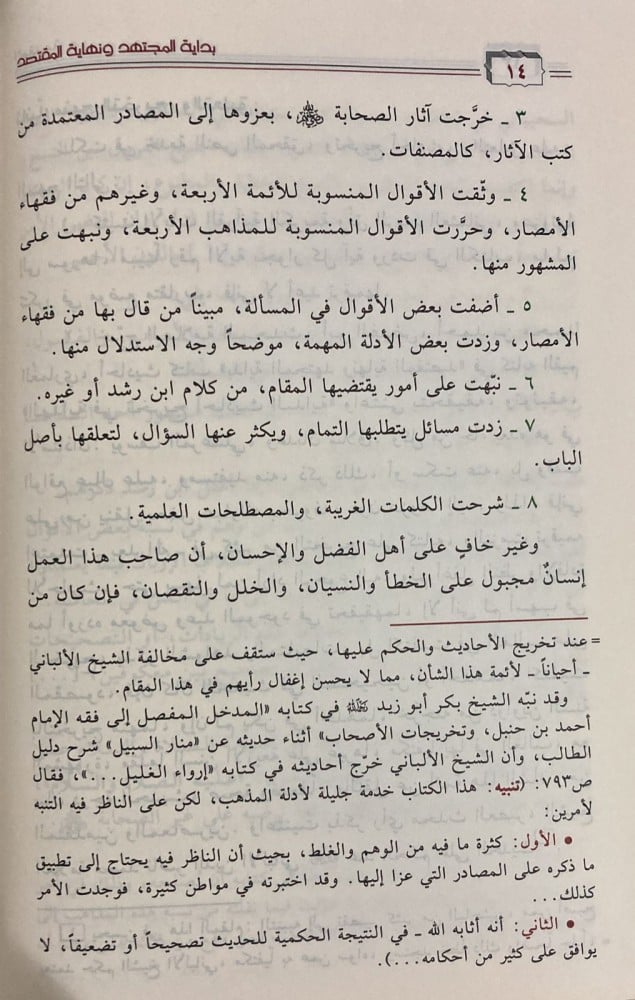 بداية المجتهد ونهاية المقتصد
١٤
٣ ـ خرَّجت آثار الصحابة ﵃، بعزوها إلى المصادر المعتمدة من
كتب الآثار، كالمصنفات.
٤ ـ وثّقت الأقوال المنسوبة للأئمة الأربعة، وغيرهم من فقهاء
الأمصار، وحرَّرت الأقوال المنسوبة للمذاهب الأربعة، ونبهت على
المشهور منها.
٥ ـ أضفت بعض الأقوال في المسألة، مبيناً من قال بها من فقهاء
الأمصار، وزدت بعض الأدلة المهمة، موضحاً وجه الاستدلال منها.
٦ ـ نبّهت على أمور يقتضيها المقام، من كلام ابن رشد أو غيره.
٧ ـ زدت مسائل يتطلبها التمام، ويكثر عنها السؤال، لتعلقها بأصل
الباب.
٨ ـ شرحت الكلمات الغريبة، والمصطلحات العلمية.
وغير خافٍ على أهل الفضل والإحسان، أن صاحب هذا العمل
إنسانٌ مجبول على الخطأ والنسيان، والخلل والنقصان، فإن كان من
= عند تخريج الأحاديث والحكم عليها، حيث ستقف على مخالفة الشيخ الألباني
ـ أحياناً ـ لأئمة هذا الشأن، مما لا يحسن إغفال رأيهم في هذا المقام.
وقد نبّه الشيخ بكر أبو زيد ﵀ في كتابه «المدخل المفصل إلى فقه الإمام
أحمد بن حنبل، وتخريجات الأصحاب» أثناء حديثه عن «منار السبيل» شرح دليل
الطالب، وأن الشيخ الألباني خرّج أحاديثه في كتابه «إرواء الغليل...»، فقال
ص٧٩٣: (تنبيه: هذا الكتاب خدمة جليلة لأدلة المذهب، لكن على الناظر فيه التنبه
لأمرين:
• الأول: كثرة ما فيه من الوهم والغلط، بحيث أن الناظر فيه يحتاج إلى تطبيق
ما ذكره على المصادر التي عزا إليها. وقد اختبرته في مواطن كثيرة، فوجدت الأمر
كذلك...
• الثاني: أنه أثابه الله ـ في النتيجة الحكمية للحديث تصحيحاً أو تضعيفاً، لا
يوافق على كثير من أحكامه...).